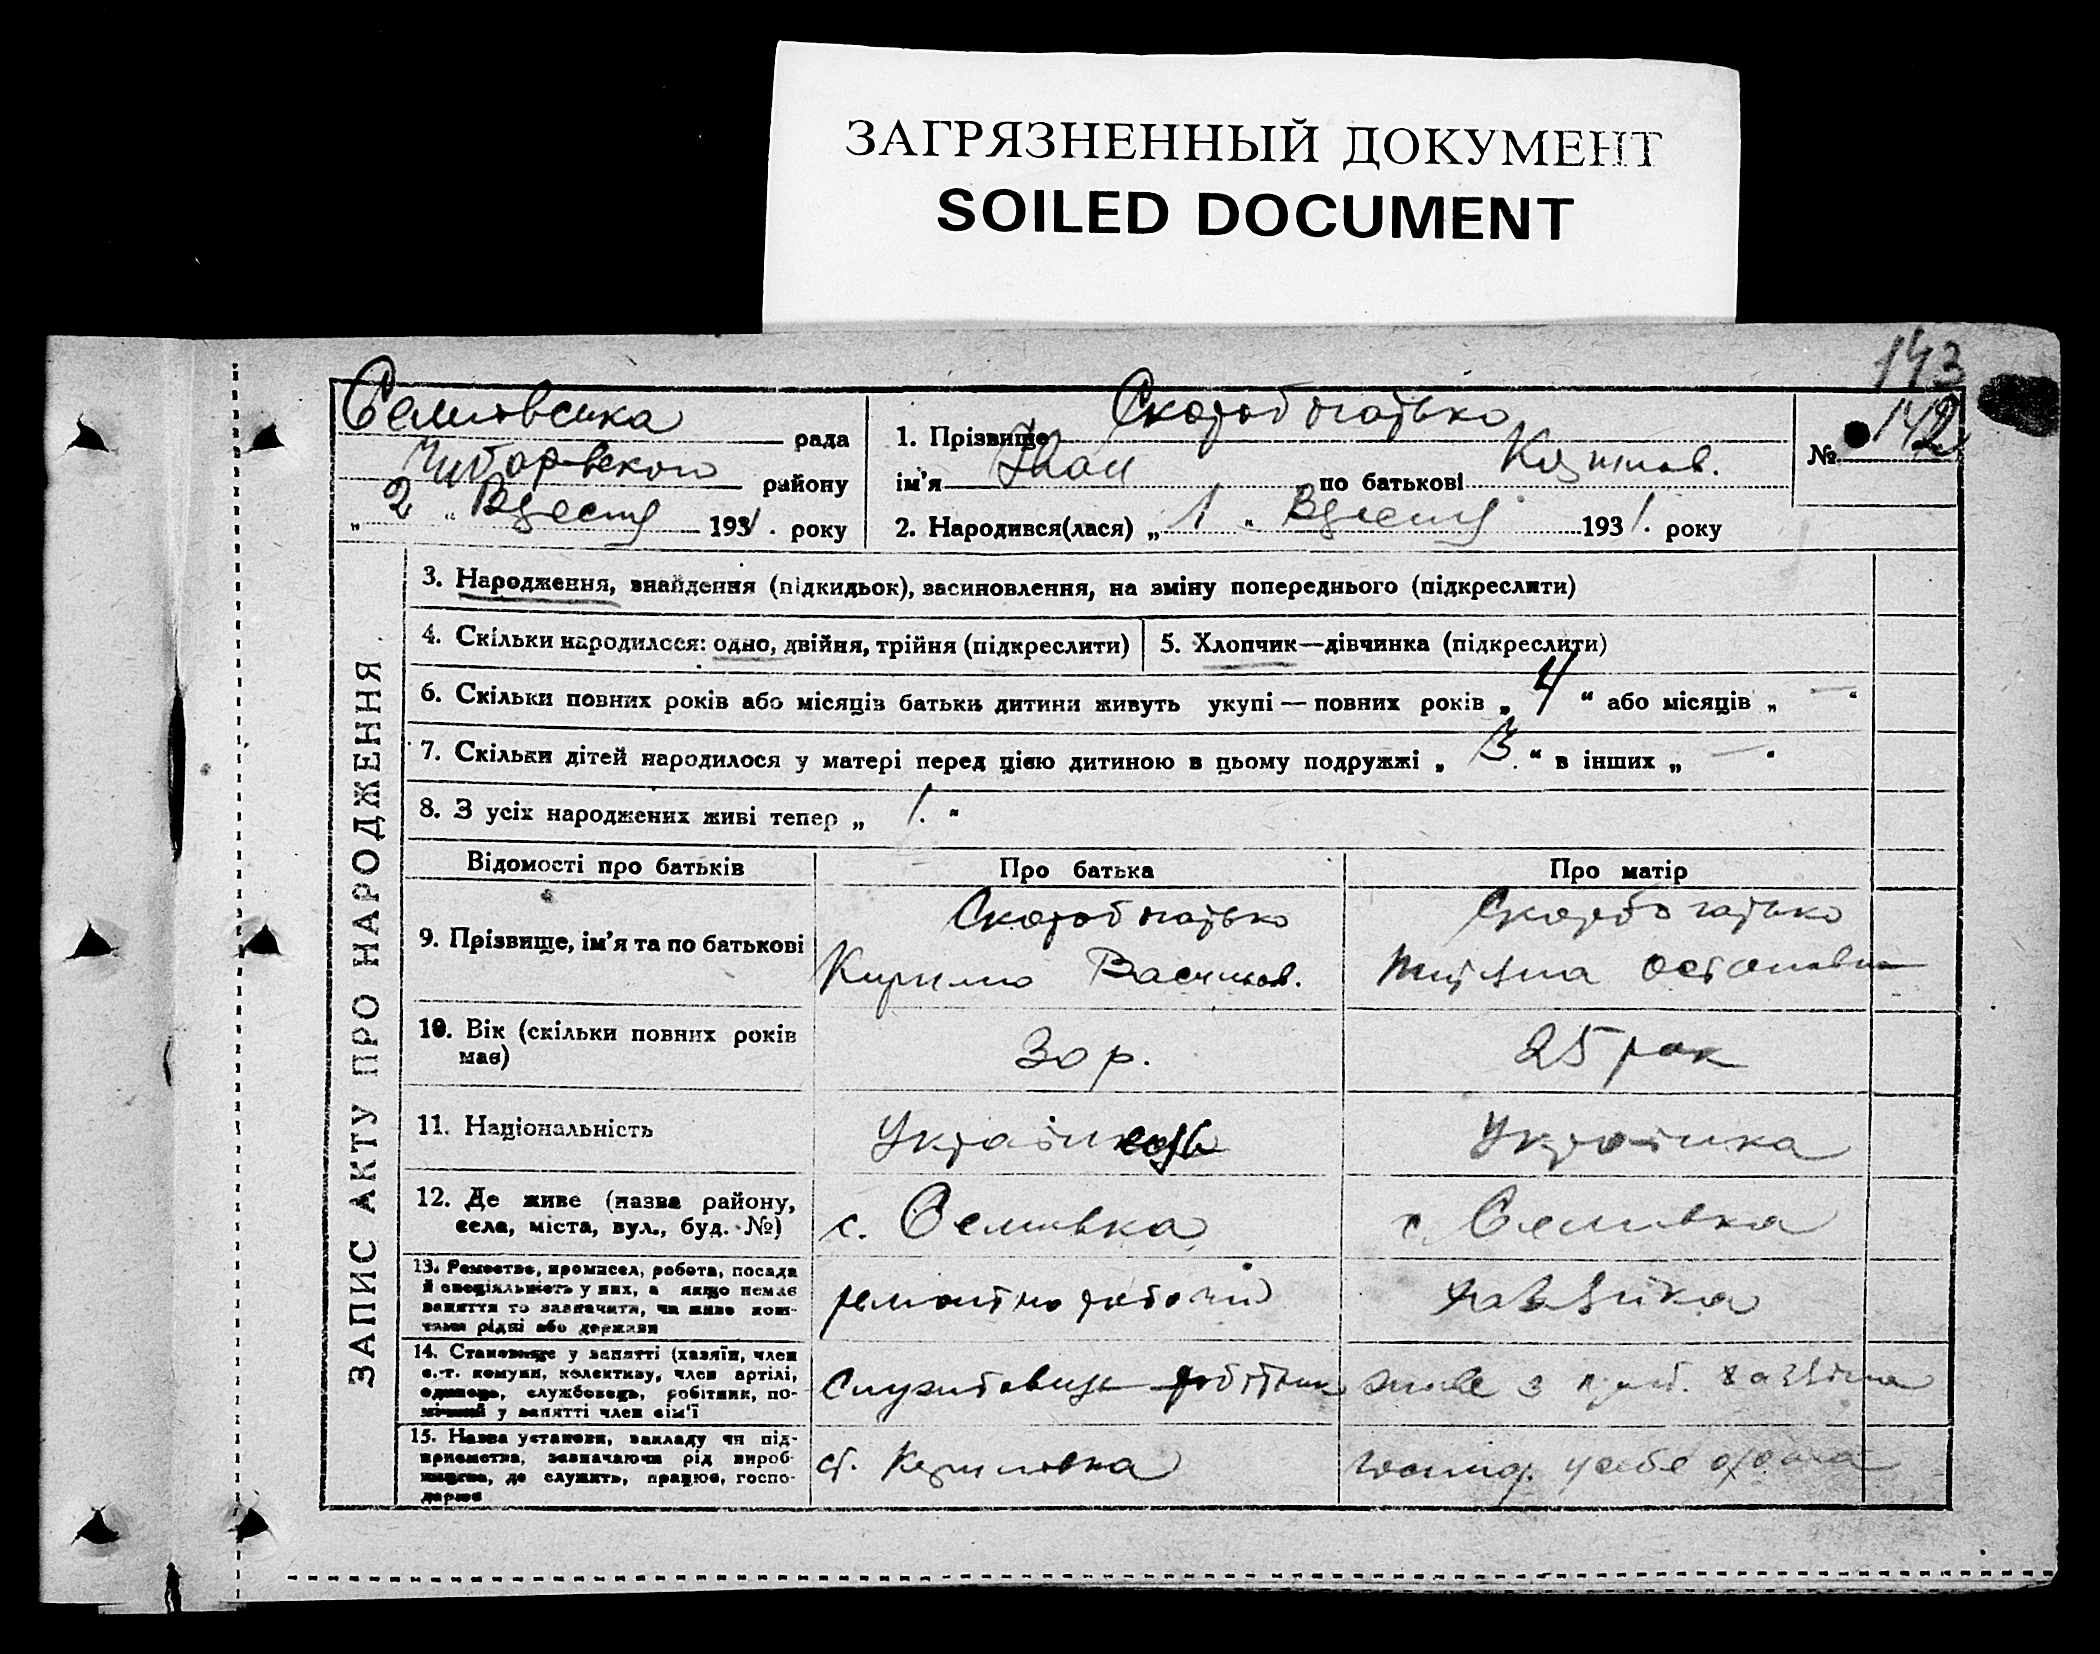 ЗАГРЯЗНЕННЫЙ ДОКУМЕНТ
SOILED DOCUMENT
143
Семівська рада
району
„ 2 " Вересня 1931. року
1. Прізвище Скоробогатько
ім'я Іван по батькові Кирилов.
2. Народився(лася) „ 1 " Вересня 1931. року
№ 142
ЗАПИС АКТУ ПРО НАРОДЖЕННЯ
3. Народження, знайдення (підкидьок), засиновлення, на зміну попереднього (підкреслити)
4. Скільки народилося: одно, двійня, трійня (підкреслити)
5. Хлопчик—дівчинка (підкреслити)
6. Скільки повних років або місяців батьки дитини живуть укупі — повних років „ 4 " або місяців „ — "
7. Скільки дітей народилося у матері перед цією дитиною в цьому подружжі „ 3. " в інших „ — "
8. З усіх народжених живі тепер „ 1. "
Відомості про батьків
Про батька
Про матір
9. Прізвище, ім'я та по батькові
Скоробогатько
Кирило Васильов.
Скоробогатько
Остапівна
10. Вік (скільки повних років
має)
30 р.
25 рок
11. Національність
Українець
Українка
12. Де живе (назва району,
села, міста, вул., буд. №)
с. Семивка
с. Семивка
13. Ремество, промисел, робота, посада
й спеціяльність у них, а якщо немає
заняття то зазначити, чи живе кош-
тами рідні або держави
ремонтно робочий
хазяйка
14. Становище у занятті (хазяїн, член
с.-г. комуни, колективу, член артілі,
одинець, службовець, робітник, по-
мічний у занятті член сім'ї
Службовець робітник
живе з
15. Назва установи, закладу чи під-
приємства, зазначаючи рід вироб-
ництва, де служить, працює, госпо-
дарює
ст. Кирилівка
господ. у себе дома